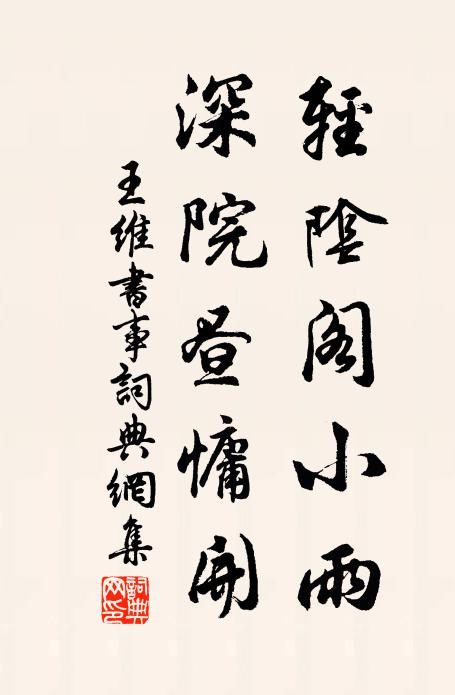 輕陰閣小雨
深院晝慵開
王維書事詞典網集
詞典网印